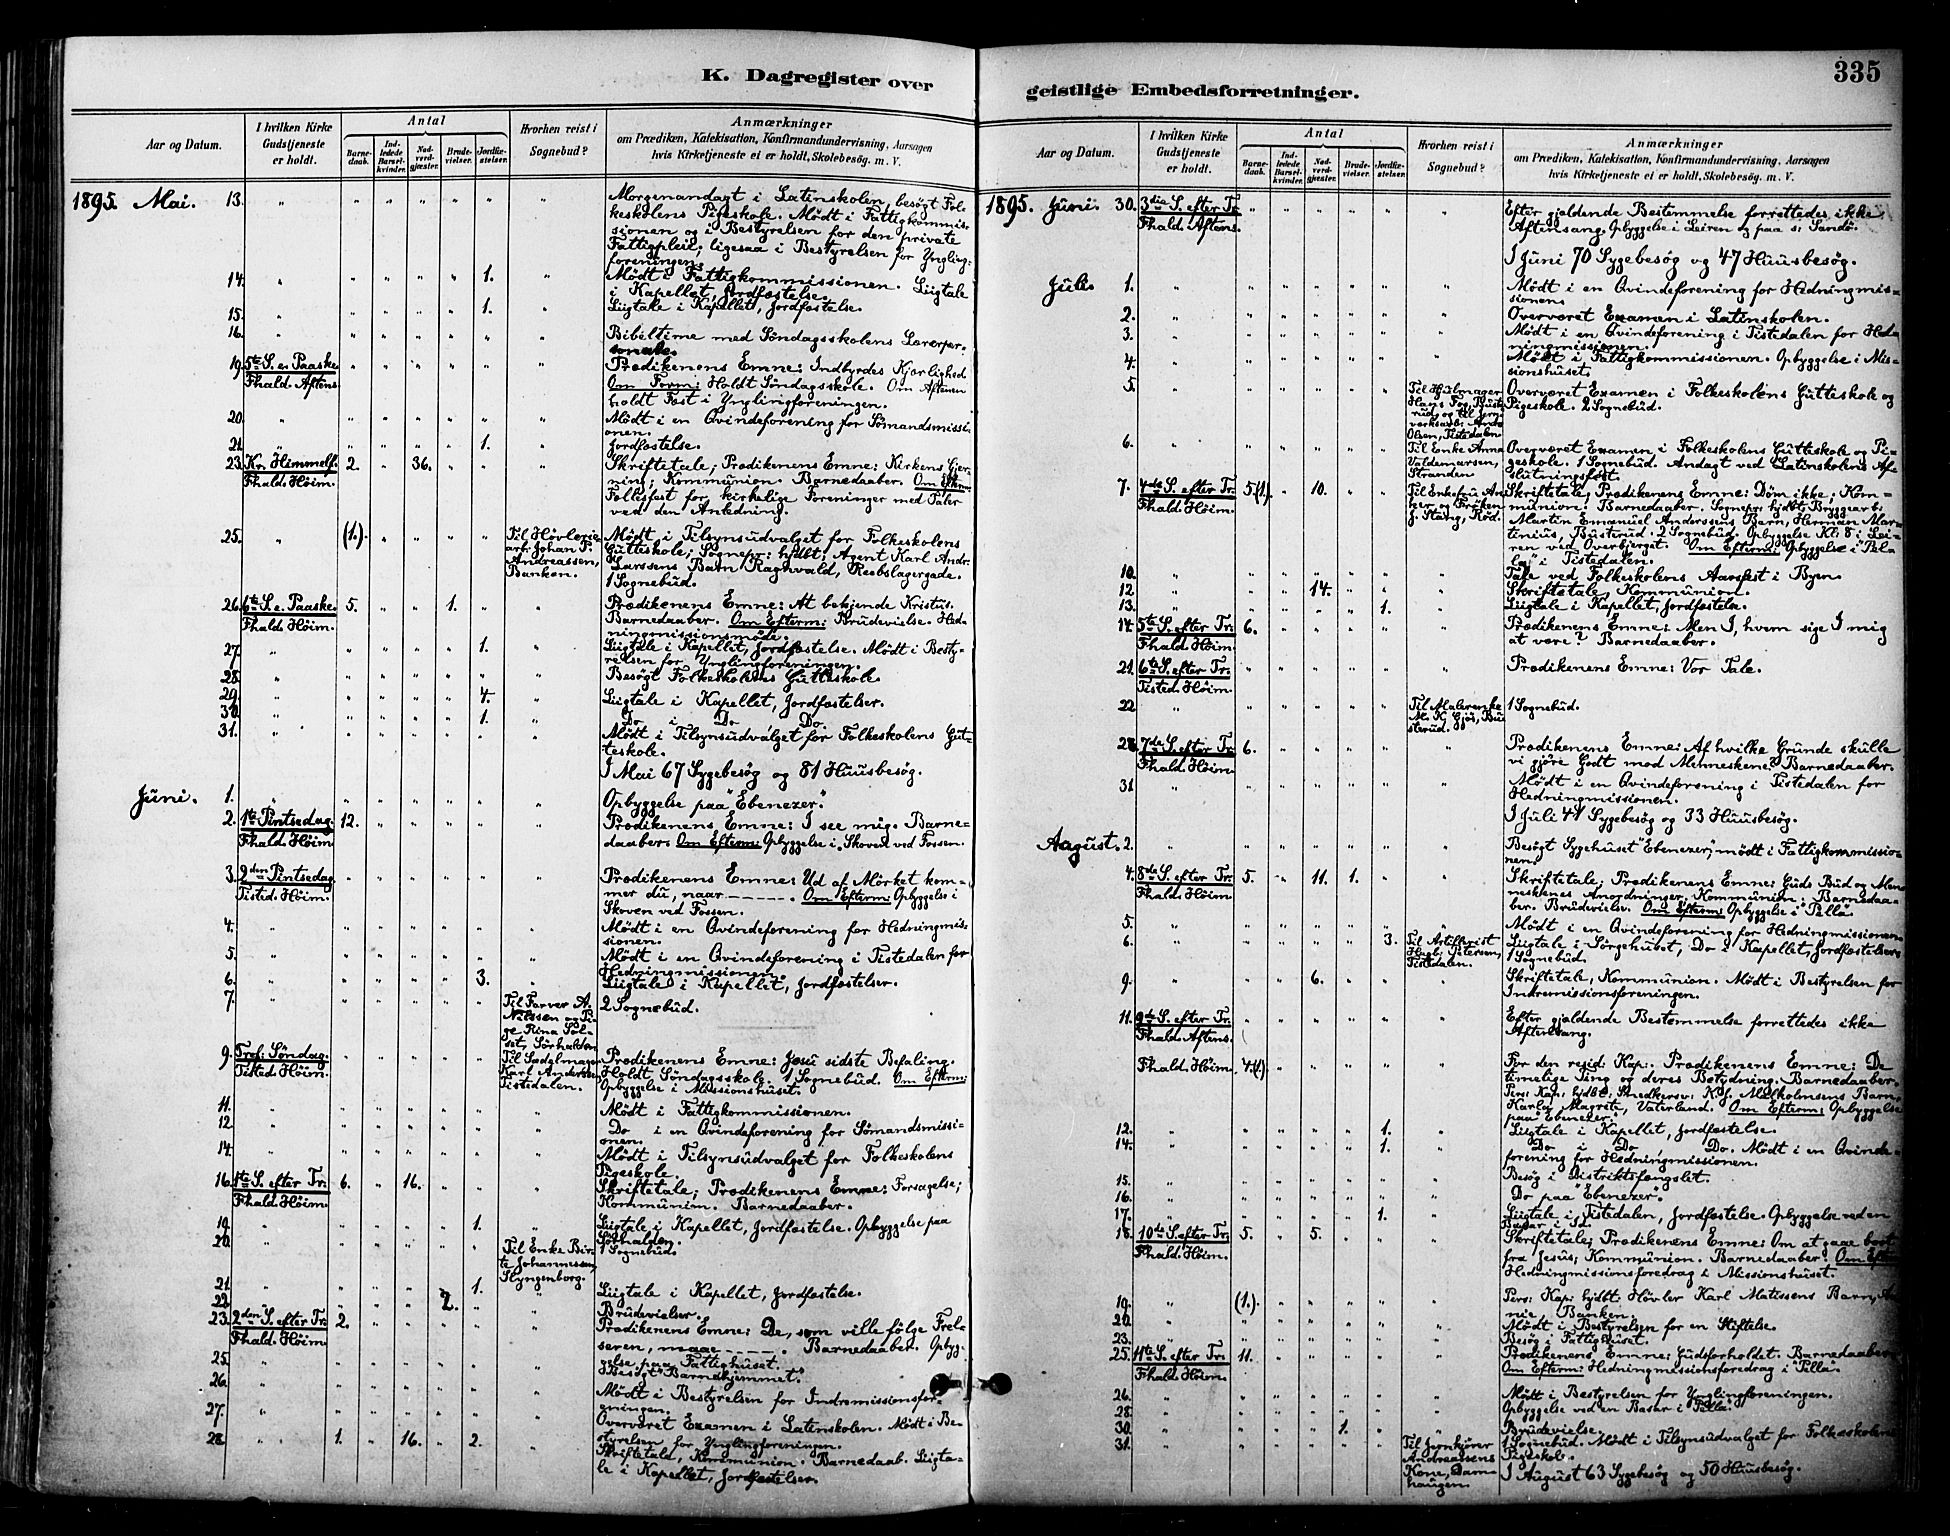 K. Dagregister over
Aar og Datum.
I hvilken Kirke Gudstjeneste er holdt.
Antal
Barnedaab.
Indledede Barselkvinder.
Nadverdgjæster.
Brudevielser.
Jordfæstelser.
Hvorhen reist i Sognebud?
Anmærkninger
om Prædiken, Katekisation, Konfirmandundervisning, Aarsagen
hvis Kirketjeneste ei er holdt, Skolebesøg. m. V.
1895. Mai. 13. Morgenandagt i Latinskolen, besøgt Fol-
keskolens Pigeskole. Mødt i Fattigkommis-
sionen og i Bestyrelsen for den private
Fattigpleie, ligesaa i Bestyrelsen for Yngling-
foreningen.
14. 1. Mødt i Fattigkommissionen. Liigtale
i Kapellet, Jordfæstelse.
15. 1. Liigtale i Kapellet, Jordfæstelse.
16. Bibeltime med Søndagsskolens Lærerper-
sonale.
19. 5te S. e. Paaske Prædikenens Emne: Indbyrdes Kjærlighed
Fhald. Aftens. Om Form: Holdt Søndagsskole. Om Aftenen
holdt Fest i Ynglingforeningen.
20. Mødt i en Qvindeforening for Sømandsmissi-
onen.
21. 1. Jordfæstelse.
23. Kr. Himmelf. 2. 36. Skriftetale; Prædikenens Emne: Kirkens Gjer-
Fhald. Høim. ning; Kommunion. Barnedaaber. Om Efterm:
Fællesfest for kirkelige Foreninger med Taler
ved den Anledning.
25. (1.) Til Høvlerie- Mødt i Tilsynsudvalget for Folkeskolens
arb. Johan P. Gutteskole; Sognepr: hjdbt: Agent Karl Andr.
Andreassen, Larssens Barn Ragnvald, Rebslagergade.
Banken. 1 Sognebud.
26. 6te S. e. Paaske. 5. 1. Prædikenens Emne: At bekjende Kristus.
Fhald. Høim. Barnedaaber. Om Efterm: Brudevielse. Hed-
ningmissionsmøde.
27. 1. Liigtale i Kapellet, Jordfæstelse. Mødt i Besty-
relsen for Ynglingforeningen.
28. Besøgt Folkeskolens Gutteskole.
29. 4. Liigtale i Kapellet, Jordfæstelser.
30. 1. Do i Do Do.
31. Mødt i Tilsynsudvalget for Folkeskolens Gut-
teskole.
I Mai 67 Sygebesøg og 81 Huusbesøg.
Juni. 1. Opbyggelse paa "Ebenezer."
2. 1ste Pintsedag. 12. Prædikenens Emne: I see mig. Barne-
Fhald. Høim. daaber. Om Efterm: Opbyggelse i Skoven ved Fossen.
3. 2den Pintsedag Prædikenens Emne: Ud af Mørket kom-
Tisted. Høim. mer du, naar ———. Om Efterm: Opbyggelse i
Skoven ved Fossen.
4. Mødt i en Qvindeforening for Hedningmis-
sionen.
5. Mødt i en Qvindeforening i Tistedalen for
Hedningmissionen.
6. 3. Liigtale i Kapellet, Jordfæstelser.
7. Til Farver A. 2 Sognebud.
Nilssen og Pi-
ge Rina Sol-
Sørhalden
9. Tref: Søndag. Til Sadelmager Prædikenens Emne: Jesu sidste Befaling.
Tisted. Høim. Karl Andersen Holdt Søndagsskole. 1 Sognebud. Om Efterm:
Tistedalen. Opbyggelse i Missionshuset.
11. Mødt i Fattigkommissionen.
12. Do i en Qvindeforening for Sømandsmissi-
onen.
14. Mødt i Tilsynsudvalget for Folkeskolens
Pigeskole.
16. 1ste S. efter Tr: 6. 16. Skriftetale; Prædikenens Emne: Forsagelse;
Fhald. Høim. Kommunion. Barnedaaber.
19. 1. Liigtale i Kapellet, Jordfæstelse. Opbyggelse paa
Sørhalden.
20. Til Enke Bir- 1 Sognebud.
te Johannessen,
Slyngenborg.
21. 1. Liigtale i Kapellet, Jordfæstelse.
22. 2. Brudevielser.
23. 2den S. efter Tr: 2. Prædikenens Emne: De, som ville følge Frel-
Fhald. Høim. seren, maae ———. Barnedaaber. Opbyg-
gelse paa Fattighuset.
25. Besøgt "Barnehjemmet".
26. Mødt i Bestyrelsen for Indremissionsfor-
eningen.
27. Overværet Examen i Latinskolen. Mødt i Be-
styrelsen for Ynglingforeningen.
28. 1. 16. 2. Skriftetale, Kommunion. Barnedaab. Liigta-
le i Kapellet, Jordfæstelser.
335
geistlige Embedsforretninger.
Aar og Datum.
I hvilken Kirke Gudstjeneste er holdt.
Antal
Barnedaab.
Indledede Barselkvinder.
Nadverdgjæster.
Brudevielser.
Jordfæstelser.
Hvorhen reist i Sognebud?
Anmærkninger
om Prædiken, Katekisation, Konfirmandundervisning, Aarsagen
hvis Kirketjeneste ei er holdt, Skolebesøg. m. V.
1895. Juni. 30. 3die S. efter Tr. Efter gjældende Bestemmelse forrettedes ikke
Fhald. Aftens. Aftensang. Opbyggelse i Leiren og paa s: Sandø.
I Juni 70 Sygebesøg og 47 Huusbesøg.
Juli. 1. Mødt i en Qvindeforening for Hedningmis-
sionen.
2. Overværet Examen i Latinskolen.
3. Mødt i en Qvindeforening i Tistedalen for Hed-
ningmissionen.
4. Mødt i Fattigkommissionen. Opbyggelse i Mis-
sionshuset.
5. Til Hjulmager Overværet Examen i Folkeskolens Gutteskole og
Hans Fog, Buste- Pigeskole. 2 Sognebud.
rud, og til Jern-
verksarb. Ands
Olsen, Tistedalen
6. Til Enke Anna Overværet Examen i Folkeskolens Gutteskole og Pi-
Valdemarsen, geskole. 1 Sognebud. Andagt ved Latinskolens Af-
Stranden slutningsfest.
7. 4de S. efter Tr: 5.(1). 10. Til Enkefru An- Skriftetale; Prædikenens Emne: Døm ikke; Kom-
Fhald. Høim. ker og Frøken munion. Barnedaaber. Sognepr: hjdbt: Bryggearb:
J. Stang, Rød. Martin Emanuel Anderssens Barn, Herman Mar-
tinius, Busterud. 2 Sognebud. Opbyggelse Kl: 8 i Lei-
ren ved Overbjerget. Om Efterm: Opbyggelse i "Pel-
la" i Tistedalen.
10. Tale ved Folkeskolens Aarsfest i Byen.
12 14. Skriftetale, Kommunion.
13. 1. Liigtale i Kapellet, Jordfæstelse.
14. 5te S. efter Tr: 6. Prædikenens Emne: Men I, hvem sige I mig
Fhald. Høim. at være? Barnedaaber.
21. 6te S. efter Tr: Prædikenens Emne: Vor Tale.
Tisted. Høim.
22 Til Malerenke 1 Sognebud.
M. K. Gjøs, Bu-
sterud.
28. 7de S. efter Tr: 6. Prædikenens Emne: Af hvilke Grunde skulle
Fhald. Høim. vi gjøre Godt mod Menneskene? Barnedaaber.
31 Mødt i en Qvindeforening i Tistedalen for
Hedningmissionen.
I Juli 41 Sygebesøg og 33 Huusbesøg.
August. 2. Besøgt Sygehuset "Ebenezer;" mødt i Fattigkommissio-
nen.
4. 8de S. efter Tr: 5. 11. 1. Skriftetale; Prædikenens Emne: Guds Bud og Men-
Fhald. Høim. neskenes Anordninger; Kommunion. Barnedaa-
ber. Brudevielse. Om Efterm: Opbyggelse i "Pella".
5. Mødt i en Qvindeforening for Hedningmissionen.
6. 3. Til Artillerist Liigtale i Sørgehuset, Do i Kapellet, Jordfæstelser.
Petersen, 1 Sognebud.
Tistedalen.
9. 6. Skriftetale, Kommunion. Mødt i Bestyrelsen for
Indremissionsforeningen.
11. 9de S. efter Tr. Efter gjældende Bestemmelse forrettedes ikke
Fhald. Aftens. Aftensang.
Fhald. Høim. 4.(1). For den resid. Kap:. Prædikenens Emne: De
timelige Ting og deres Betydning. Barnedaaber.
Pers: Kap: hjdbt: Snedkersv: K. J. Malkolmsens Barn
Karla Magrete, Vaterland. Om Efterm: Opbyggelse
paa "Ebenezer".
12. 1. Liigtale i Kapellet, Jordfæstelse.
14. 1. Do i Do Do. Mødt i en Qvinde-
forening for Hedningmissionen.
15. Besøg i Distriktsfængslet.
16. Do paa "Ebenezer".
17. 1. Liigtale i Tistedalen, Jordfæstelse. Opbyggelse ved en
Basar i Sd.
18. 10de S. efter Tr: 5. 5. Skriftetale; Prædikenens Emne: Om at gaae bort
Fhald. Høim. fra Jesus; Kommunion. Barnedaaber. Om Efterm:
Hedningmissionsforedrag i Missionshuset.
19. (1.) Pers: Kap: hjdbt Høvler Karl Matissens Barn, An-
nie, Banken.
20. Mødt i Bestyrelsen for en Stiftelse.
23. Besøg i Fattighuset.
25. 11te S. efter Tr: 11. Prædikenens Emne: Gudsforholdet. Barnedaaber.
Fhald. Høim. Om Efterm: Hedningmissionsforedrag i "Pella".
26. Mødt i Bestyrelsen for Ynglingforeningen.
28. Opbyggelse ved en Basar i "Pella".
30. 1. Brudevielse.
31. Til Jernkjører 1 Sognebud. Mødt i Tilsynsudvalget for Folkeskolens
Andreassens Pigeskole.
Kone, Dam- I August 63 Sygebesøg og 50 Huusbesøg.
haugen.